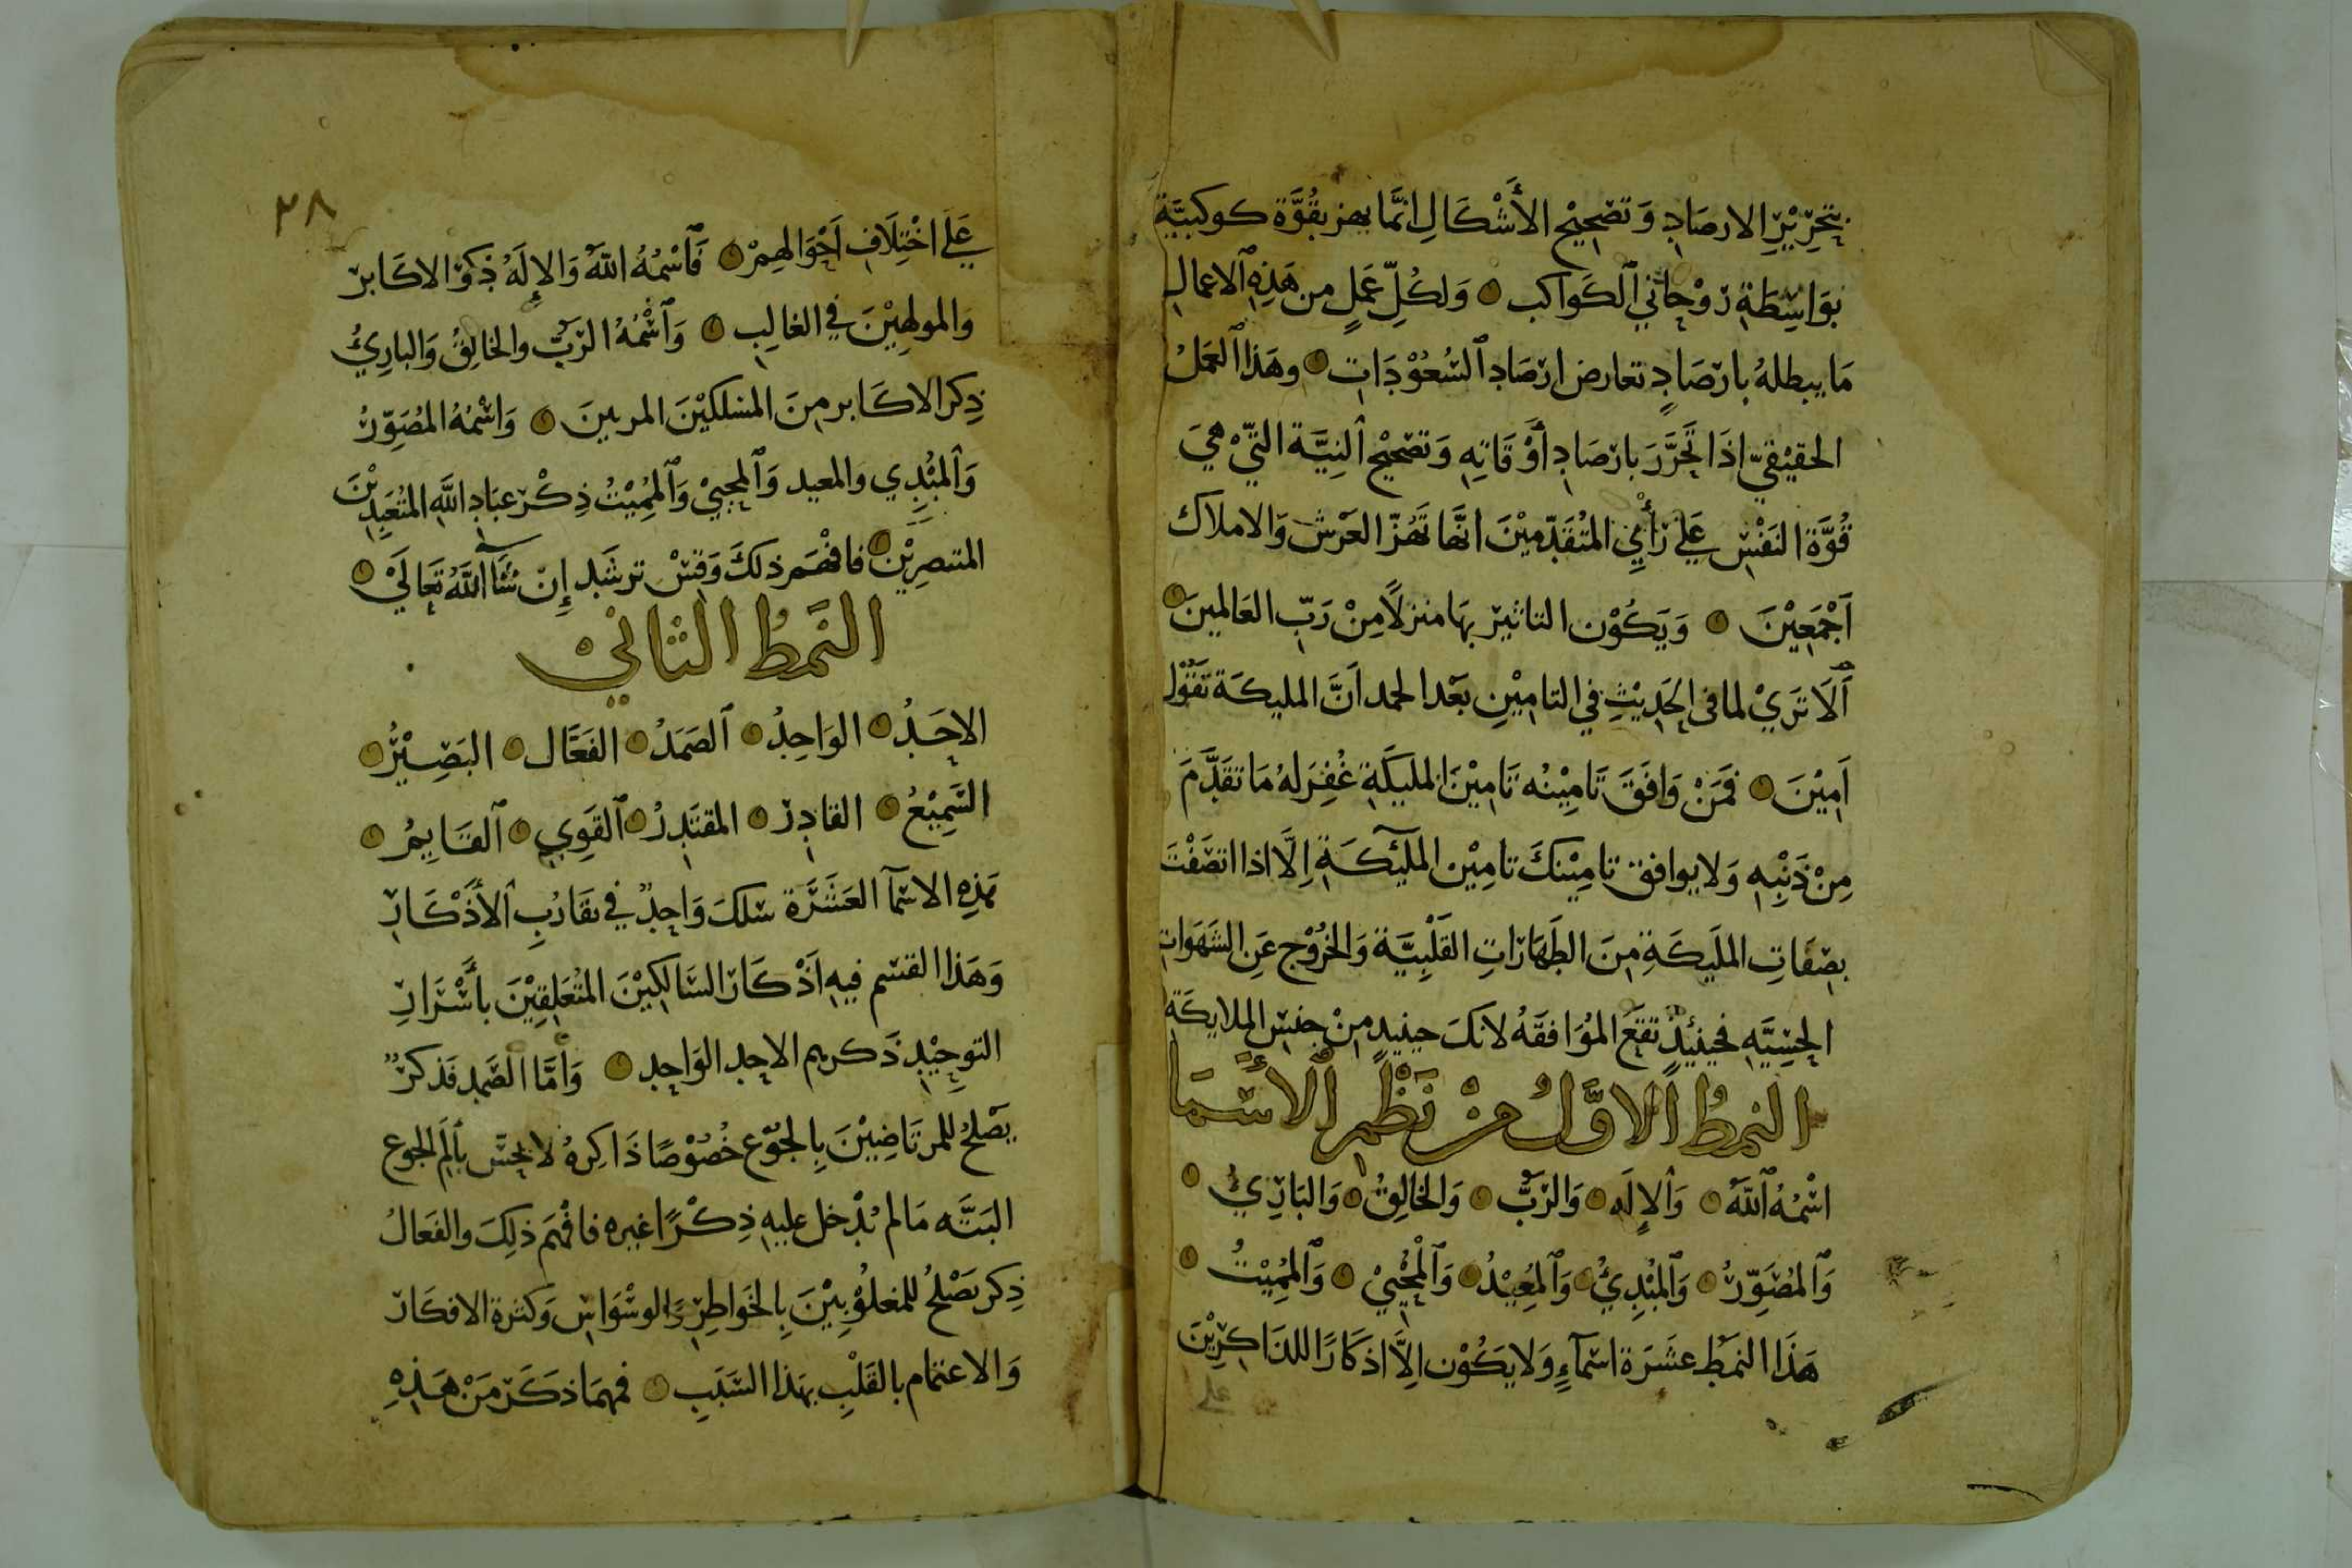 بتحرير الارصاد وَتصحِيْح الأَشْكَالِ انمَّا يهز بقُوَّة كوكبيَّة
بوَاسِطَةِ روْحاني ٱلكَواكب وَلكُلِّ عَملٍ من هَذِهِ ٱلاعمالِ
مَا يبطلهُ بارصَادٍ تعارض ارصَاد ٱلسُعُوْدَات وهَذا ٱلعَملُ
الحقيْقيّ اذَا تحَرَّرَ بارصَادِ أوْقَاتِهِ وَتصْحيْح ٱلنِيَّة التيّ هيَ
قُوَّة النَفْس عَلى رَأْيِ المتُقَدّميْنَ انهَّا تَهُزّ العَرْش وَالاملاك
اَجْمَعِيْنَ وَيَكُوْن التاثير بهَا منزلاً مِنْ رَبّ العَالمينَ
اَلَا تَرَيْ لما فى الحَدِيْثِ فى التامِيْنِ بَعْد الحمد اَنَّ المليكَة تقُوْل
اَمِيْنَ فمَنْ وَافَقَ تَامِيْنُه تَامِيْنَ المليكَةِ غُفِرَ لهُ مَا تقَدَّمَ
مِنْ ذَنْبِهِ وَلا يوافق تامِيْنكَ تامِيْن الملَيْكَةِ اِلَّا اذا اتصَفْتَ
بصِفَاتِ الملَيكَةِ مِنَ الطَهَارَاتِ القلْبِيَّة وَالخرُوْج عَنِ الشَهَوَاتِ
الحِسِّيَّهِ فحينئِيذٍ تقعَ الموُافقَهُ لانكَ حينيذٍ مِنْ جنس الملايكَة
النمطُ الاوَّلُ مِنْ نَظْمِ ٱلأسْمَا
اسْمُهُ ٱللَّهُ وَٱلإلَه وَالرَبُّ وَالخالِقُ وَالبَارِيُ
وَٱلمُصَوّرُ وَٱلمُبْدِيُ وَٱلمُعِيْدُ وَٱلمُحْيِيْ وَٱلمُمِيْتُ
هَذَا النمَط عشَرَة اسْمآءٍ وَلا يكُوْن اِلَّا اذكَارًا للذَاكِرِيْنَ
على
٣٨
عَلى اخْتِلَافِ اَحْوَالهِمْ فَٱسْمُهُ اللَّهُ وَالإلَهُ ذِكرُ الاكَابر
وَالمولهِيْنَ في الغالِبِ وَٱسْمُهُ الرَبُّ والخالِقُ وَالبارِيُ
ذِكر الاكَابر مِنَ المسَلكيْنَ المربينَ وَاسْمُهُ المُصَوّرُ
وَٱلمُبْدِي والمعيد وَٱلمحْيِيْ وَٱلمُمِيْتُ ذِكْر عبَادِ اللَّهِ المتُعَبِدِيْنَ
فافْهَم ذلكَ وَقِسْ ترشَد إِنْ شَآ اللَّهُ تَعَالَيْ
النَمطُ الثانيْ
الاحَدُ الوَاحِدُ ٱلصَمَدُ الفَعَّال البَصِيْرُ
السَّمِيْعُ القادِر المقتَدِرُ ٱلقَوِي ٱلقَايِمُ
هَذِهِ الاسْمآ العَشَرَة سْلكَ وَاحِدٌ في تقَارُبِ ٱلأَذْكَارِ
وَهَذا القسْم فيهِ اَذْكَار السَّالكِيْنَ المتُعَلِقِيْنَ بأَسْرَارِ
التوحِيْدِ ذَكرهم الاحِد الوَاحِد وَأمَّا الصَّمِد فَذكرٌ
يَصْلحُ للمرتَاضِيْنَ بِالجُوْعِ خُصُوْصًا ذَاكِرهُ لا يحُسّ بأَلَمِ الجوع
البَتَّه مَا لم يُدْخل عليهِ ذِكْرًا غيره فافْهَمَ ذلِكَ والفَعالُ
ذِكر يَصْلحُ للمغلُوْبِيْنَ بِالخَواطِرِ وَالوسْوَاسِ وَكثرة الافكَار
وَالاعتمام بالقَلْبِ بهَذا السَّبَبِ فمهمَا ذكَرَ مَنْ هَذِهِ